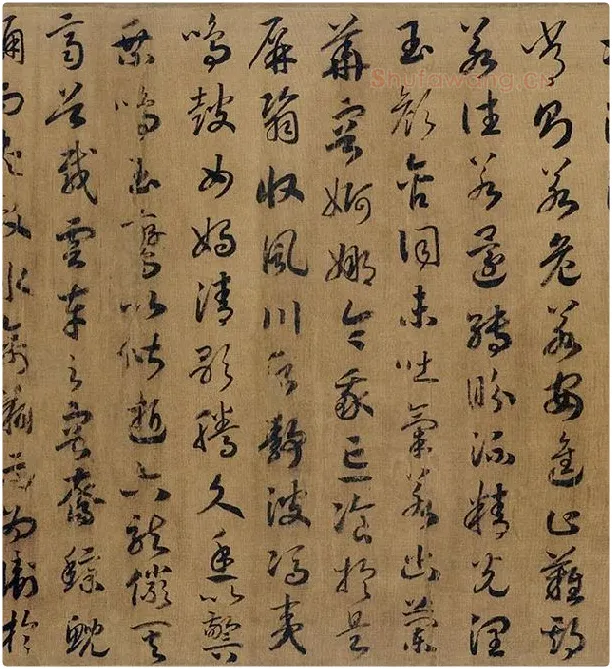 常則若危若安進止難期
若往若還轉眄流精光潤
玉顏含詞未吐氣若幽蘭
華容婀娜令我忘飡於是
屏翳收風川后靜波馮夷
鳴鼓女媧清歌騰文魚以警
乘鳴玉鸞以偕逝六龍儼其
齊首載雲車之容裔鯨鯢
踊而夾轂水禽翔而為衛於
Shufawang.Cn